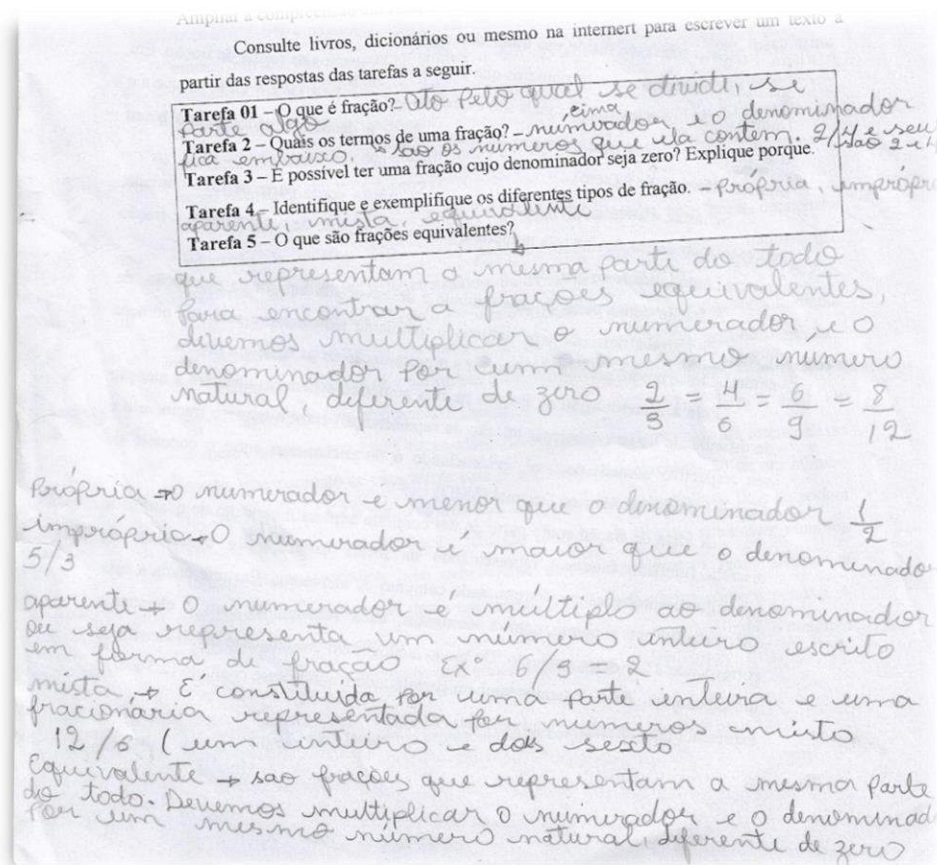 Ampliar a compreensão
Consulte livros, dicionários ou mesmo na internert para escrever um texto a
partir das respostas das tarefas a seguir.
Tarefa 01 – O que é fração? - Ato pelo qual se dividi, se
parte algo
cima
Tarefa 2 – Quais os termos de uma fração? – numerador e o denominador
fica embaixo. são os números que ela contem. 2/4 e seu
são 2 e 4
Tarefa 3 – É possível ter uma fração cujo denominador seja zero? Explique porque.
Tarefa 4 – Identifique e exemplifique os diferentes tipos de fração. - própria, imprópri
aparente, mista, equivalente
Tarefa 5 – O que são frações equivalentes?
que representam a mesma parte do todo
para encontrar a frações equivalentes,
devemos multiplicar o numerador e o
denominador por um mesmo número
natural, diferente de zero 2/3 = 4/6 = 6/9 = 8/12
Própria → O numerador e menor que o denominador 1/2
imprópria → O numerador é maior que o denomenado
5/3
aparente → O numerador é múltiplo ao denominador
ou seja representa um número inteiro escrito
em forma de fração Ex: 6/9 = 2
mista → É constituída por uma parte inteira e uma
fracionária representada por numeros misto
12/6 (um inteiro e dois sexto
Equivalente → sao frações que representam a mesma parte
do todo. Devemos multiplicar o numerador e o denominad
por um mesmo número natural, diferente de zero